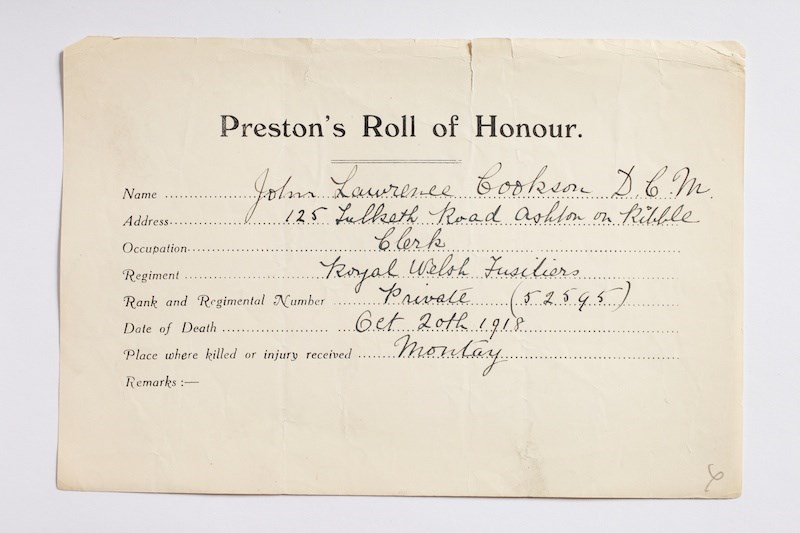 Preston's Roll of Honour.
Name John Lawrence Cookson D.C.M.
Address 125 Tulketh Road Ashton on Ribble
Occupation Clerk
Regiment Royal Welsh Fusiliers
Rank and Regimental Number Private (52595)
Date of Death Oct 20th 1918
Place where killed or injury received Montay
Remarks :—